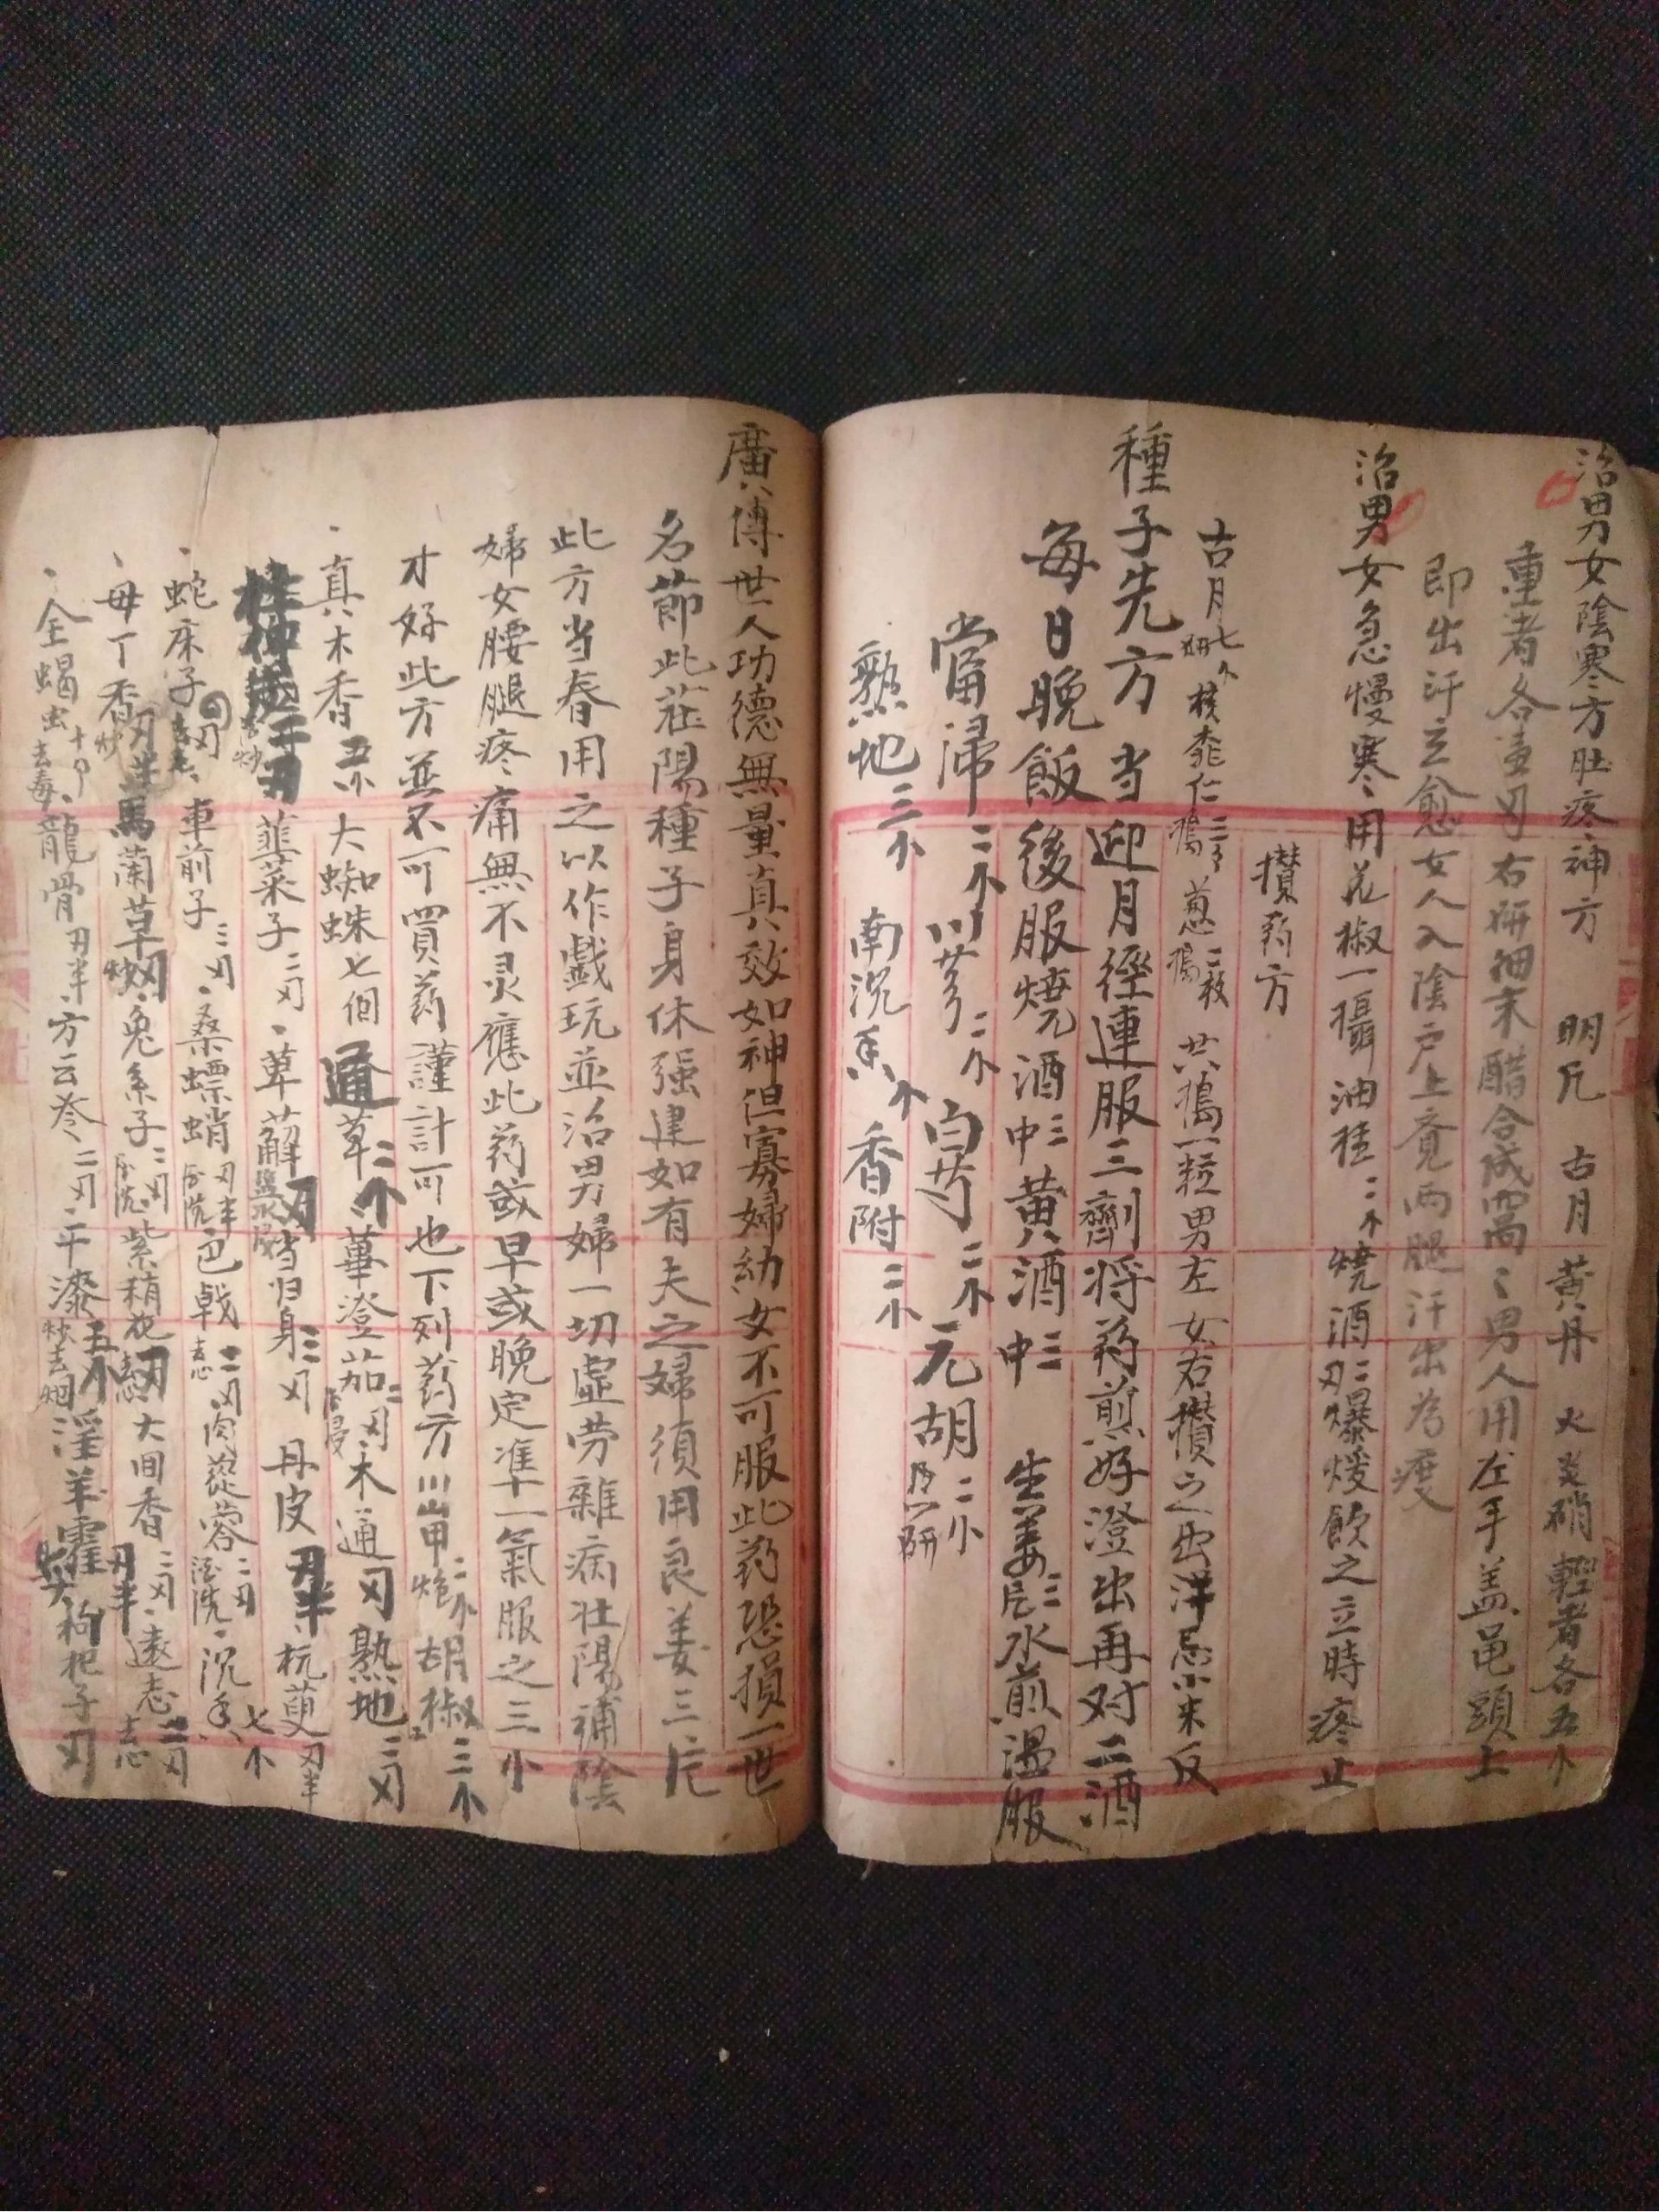 治男女陰寒方肚疼神方 明凡 古月 黃丹 火炎硝 輕者各五个
重者各壹刃右研細末醋合成㘞男人用左手盖黾頭上
即出汗立愈女人入陰户上齐兩腿汗出為度
治男女急慢寒用花椒一撮油桂二个燒酒二刃爆煖飲之立時疼止
攢葯方
古月七个研核桃仁三个搗葱二枚搗共搗一粒男左女右攢之出汗忌米反
種子先方当迎月徑連服三劑將葯煎好澄出再对二酒
每日晚飯後服燒酒三中黃酒三中 生姜三片水煎温服
當归二个川芎二个白芍二个元胡二个
熟地三个南沉香个香附二个
廣傳世人功德無量真效如神但寡婦幼女不可服此葯恐損一世
名節此莊陽種子身休强建如有夫之婦須用良姜三片
此方当春用之以作戲玩並治男婦一切虛劳雜病壮陽補陰
婦女腰腿疼痛無不灵應此葯或早或晚定準一氣服之三小
才好此方並不可買葯謹計可也下列葯方川山甲炮二个胡椒三个
真木香五个大蜘蛛七個通草二个蓽澄茄二刃木通刃熟地二刃
韮菜子二刃萆薢刃当归身三刃丹皮刃半杭萸刃半
蛇床子車前子三刃桑螵蛸刃半酒洗巴戟去心二刃肉蓯蓉二刃酒洗沉香七个
母丁香刃半馬蘭草炒刃兔糸子二刃酒洗紫稍花刃大回香二刃遠志二刃去心
全蝎虫十个去毒龍骨刃半方云苓二刃干漆五个炒去烟淫羊霍枸杞子刃